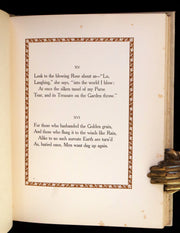 XV
Look to the blowing Rose about us—"Lo,
Laughing," she says, "into the world I blow:
At once the silken tassel of my Purse
Tear, and its Treasure on the Garden throw."
XVI
For those who husbanded the Golden grain,
And those who flung it to the winds like Rain,
Alike to no such aureate Earth are turn'd
As, buried once, Men want dug up again.